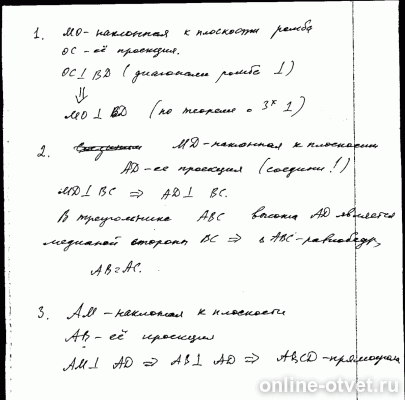 1. МО - наклонная к плоскости ромба
ОС - её проекция.
ОС ⊥ BD (диагонали ромба ⊥)
⇓
МО ⊥ BD (по теореме о 3х ⊥)
2. МD - наклонная к плоскости
AD - ее проекция (соедини!)
MD ⊥ BC ⇒ AD ⊥ BC.
В треугольнике ABC высота AD является
медианой стороны BC ⇒ ΔABC - равнобедр,
AB = AC.
3. AM - наклонная к плоскости
AB - её проекция
AM ⊥ AD ⇒ AB ⊥ AD ⇒ ABCD - прямоугол
online-otvet.ru